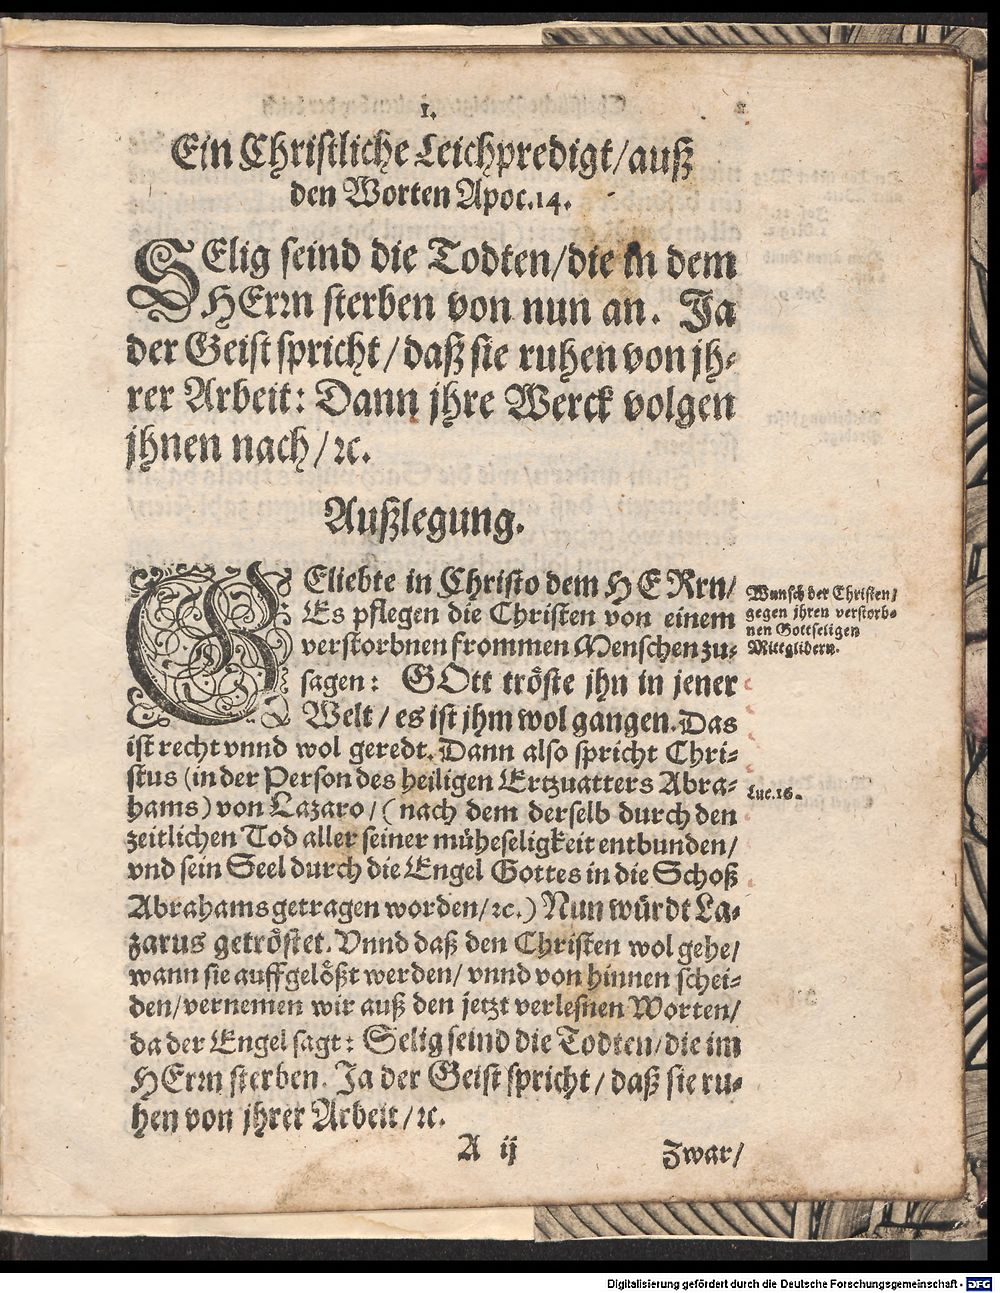 1.
Ein Christliche Leichpredigt/auß
den Worten Apoc.14.
SElig seind die Todten/die in dem
HErrn sterben von nun an. Ja
der Geist spricht/daß sie ruhen von jh-
rer Arbeit: Dann jhre Werck volgen
jhnen nach/ꝛc.
Außlegung.
GEliebte in Christo dem HERrn/
Es pflegen die Christen von einem
verstorbnen frommen Menschen zu-
sagen: GOtt tröste jhn in jener
Welt/es ist jhm wol gangen. Das
ist recht vnnd wol geredt. Dann also spricht Chri-
stus (in der Person des heiligen Ertzuatters Abra-
hams) von Lazaro/(nach dem derselb durch den
zeitlichen Tod aller seiner müheseligkeit entbunden/
vnd sein Seel durch die Engel Gottes in die Schoß
Abrahams getragen worden/ꝛc.) Nun würdt La-
zarus getröstet. Vnnd daß den Christen wol gehe/
wann sie auffgelößt werden/vnnd von hinnen schei-
den/vernemen wir auß den jetzt verlesnen Worten/
da der Engel sagt: Selig seind die Todten/die im
HErrn sterben. Ja der Geist spricht/daß sie ru-
hen von jhrer Arbeit/ꝛc.
A ij
Zwar/
Wunsch der Christen/
gegen jhren verstorb-
nen Gottseligen
Mittglidern.
Luc.16.
Digitalisierung gefördert durch die Deutsche Forschungsgemeinschaft - DFG